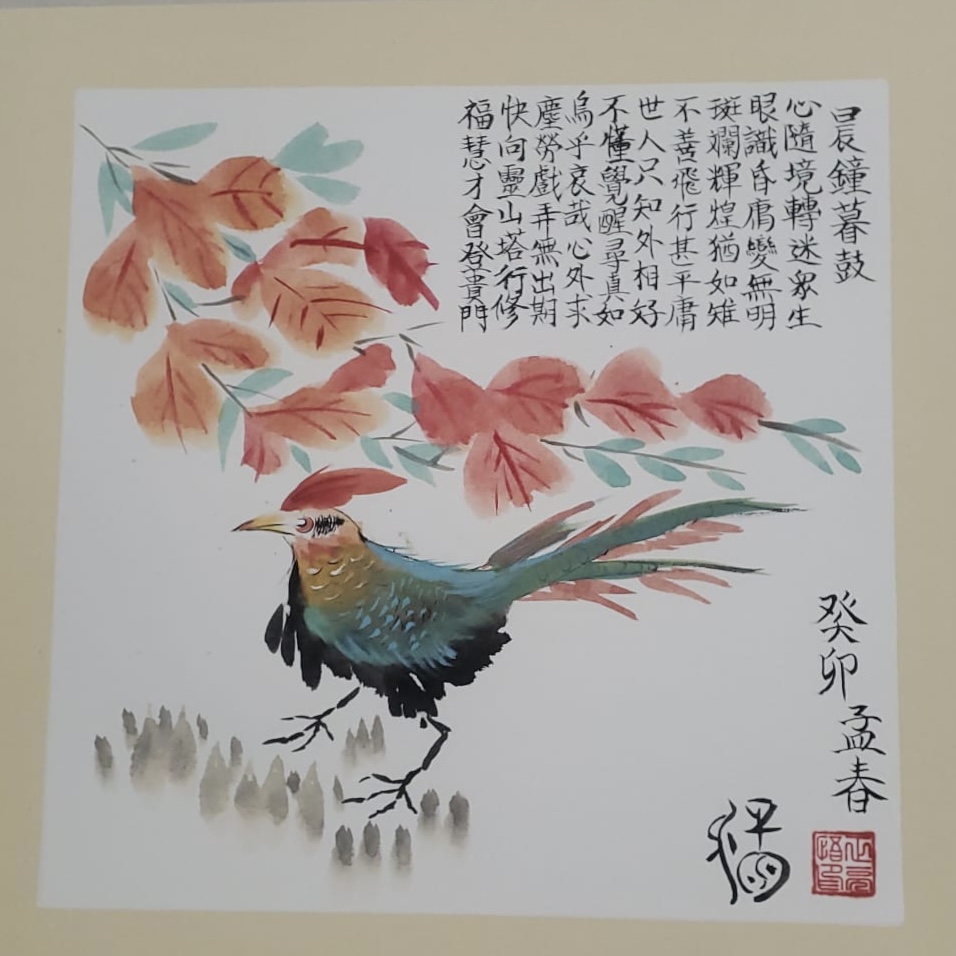 晨鐘暮鼓
心隨境轉迷眾生
眼識昏庸變無明
斑斕輝煌猶如雉
不善飛行甚平庸
世人只知外相好
不懂覺醒尋真如
烏乎哀哉心外求
塵勞戲弄無出期
快向靈山塔行修
福慧才會登貴門
癸卯
孟春